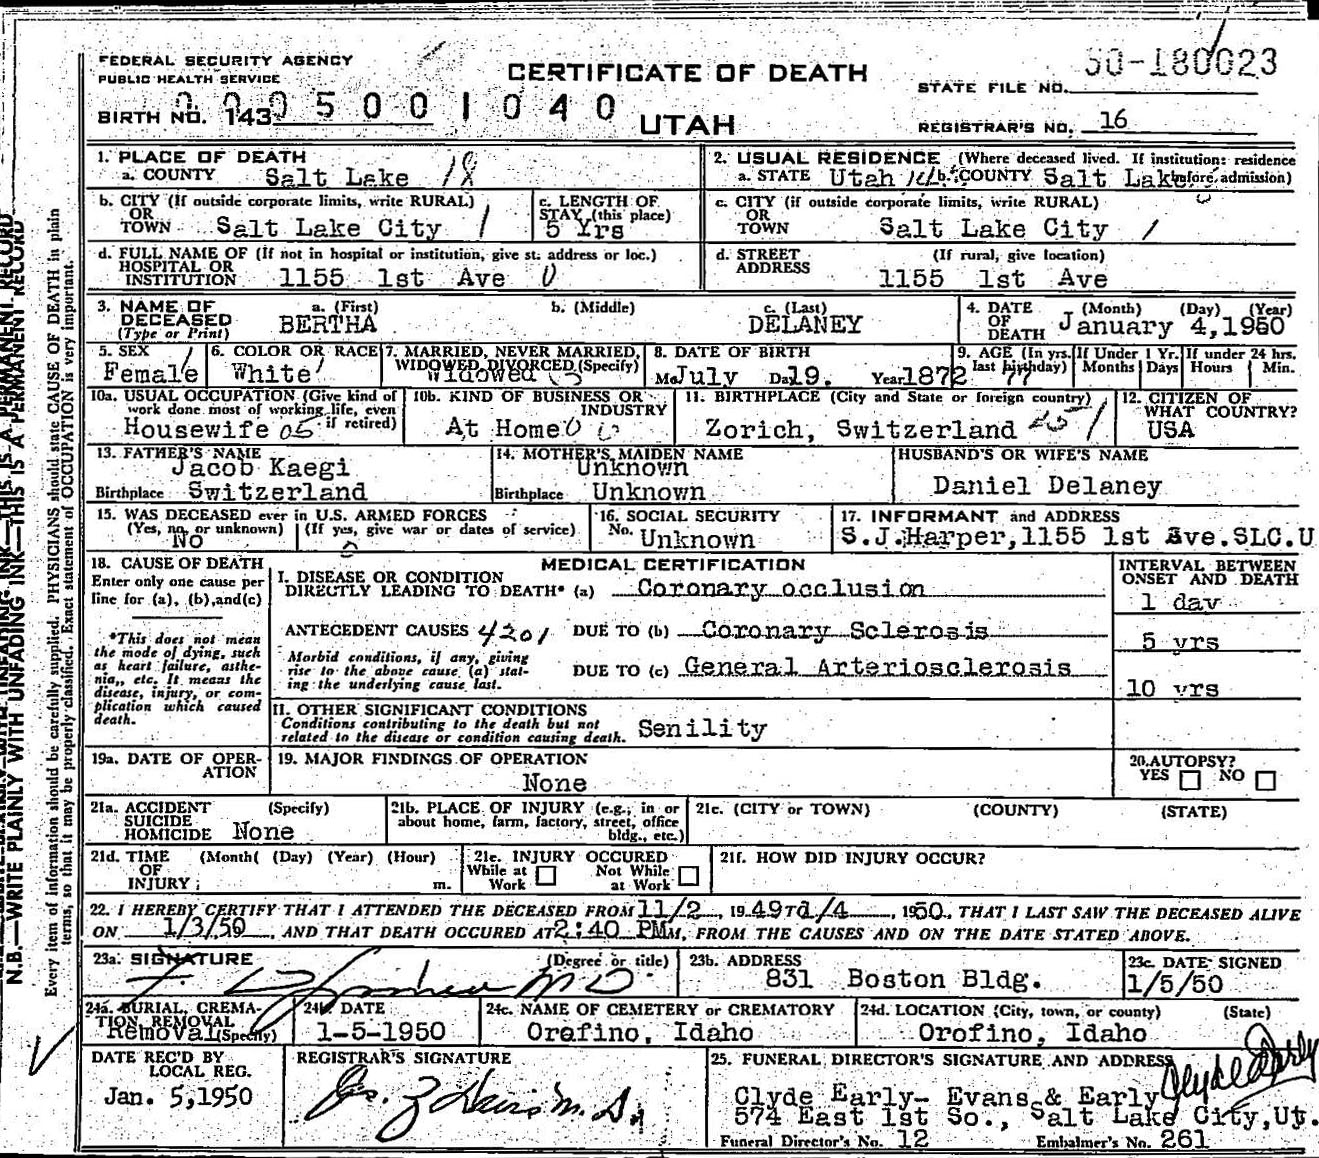 FEDERAL SECURITY AGENCY
PUBLIC HEALTH SERVICE
CERTIFICATE OF DEATH
UTAH
50-180023
STATE FILE NO.
BIRTH NO. 143
0005001040
REGISTRAR'S NO. 16
1. PLACE OF DEATH
a. COUNTY Salt Lake 18
2. USUAL RESIDENCE (Where deceased lived. If institution: residence before admission)
a. STATE Utah b. COUNTY Salt Lake
b. CITY (If outside corporate limits, write RURAL)
OR
TOWN Salt Lake City 1
c. LENGTH OF
STAY (this place)
5 Yrs
c. CITY (if outside corporate limits, write RURAL)
OR
TOWN Salt Lake City 1
d. FULL NAME OF (If not in hospital or institution, give st. address or loc.)
HOSPITAL OR
INSTITUTION 1155 1st Ave 0
d. STREET (If rural, give location)
ADDRESS 1155 1st Ave
3. NAME OF
DECEASED
(Type or Print)
a. (First) BERTHA
b. (Middle)
c. (Last) DELANEY
4. DATE
OF
DEATH
(Month) (Day) (Year)
January 4, 1950
5. SEX
Female
6. COLOR OR RACE
White
7. MARRIED, NEVER MARRIED,
WIDOWED, DIVORCED (Specify)
Widowed
8. DATE OF BIRTH
Mo. July Da. 19. Year 1872
9. AGE (In yrs. last birthday) 77
If Under 1 Yr. Months Days
If under 24 hrs. Hours Min.
10a. USUAL OCCUPATION (Give kind of
work done most of working life, even
if retired)
Housewife 05
10b. KIND OF BUSINESS OR
INDUSTRY
At Home
11. BIRTHPLACE (City and State or foreign country)
Zorich, Switzerland
12. CITIZEN OF
WHAT COUNTRY?
USA
13. FATHER'S NAME
Jacob Kaegi
Birthplace Switzerland
14. MOTHER'S MAIDEN NAME
Unknown
Birthplace Unknown
HUSBAND'S OR WIFE'S NAME
Daniel Delaney
15. WAS DECEASED ever in U.S. ARMED FORCES
(Yes, no, or unknown) (If yes, give war or dates of service)
No
16. SOCIAL SECURITY
No. Unknown
17. INFORMANT and ADDRESS
S.J.Harper, 1155 1st Ave. SLC.U
18. CAUSE OF DEATH
Enter only one cause per
line for (a), (b), and (c)
*This does not mean
the mode of dying, such
as heart failure, asthe-
nia,, etc. It means the
disease, injury, or com-
plication which caused
death.
MEDICAL CERTIFICATION
I. DISEASE OR CONDITION
DIRECTLY LEADING TO DEATH* (a) Coronary occlusion
ANTECEDENT CAUSES 4201 DUE TO (b) Coronary Sclerosis
Morbid conditions, if any, giving
rise to the above cause (a) stat-
ing the underlying cause last.
DUE TO (c) General Arteriosclerosis
II. OTHER SIGNIFICANT CONDITIONS
Conditions contributing to the death but not
related to the disease or condition causing death.
Senility
INTERVAL BETWEEN
ONSET AND DEATH
1 day
5 yrs
10 yrs
19a. DATE OF OPER-
ATION
19. MAJOR FINDINGS OF OPERATION
None
20. AUTOPSY?
YES NO
21a. ACCIDENT (Specify)
SUICIDE
HOMICIDE None
21b. PLACE OF INJURY (e.g., in or
about home, farm, factory, street, office
bldg., etc.)
21c. (CITY or TOWN) (COUNTY) (STATE)
21d. TIME (Month( (Day) (Year) (Hour)
OF
INJURY m.
21e. INJURY OCCURED
While at Work Not While at Work
21f. HOW DID INJURY OCCUR?
22. I HEREBY CERTIFY THAT I ATTENDED THE DECEASED FROM 11/2, 1949 TO 1/4, 1950, THAT I LAST SAW THE DECEASED ALIVE
ON 1/3/50, AND THAT DEATH OCCURED AT 2:40 PM M, FROM THE CAUSES AND ON THE DATE STATED ABOVE.
23a. SIGNATURE (Degree or title)
M D
23b. ADDRESS
831 Boston Bldg.
23c. DATE SIGNED
1/5/50
24a. BURIAL, CREMA-
TION, REMOVAL
Removal (Specify)
24b. DATE
1-5-1950
24c. NAME OF CEMETERY or CREMATORY
Orofino, Idaho
24d. LOCATION (City, town, or county) (State)
Orofino, Idaho
DATE REC'D BY
LOCAL REG.
Jan. 5, 1950
REGISTRAR'S SIGNATURE
25. FUNERAL DIRECTOR'S SIGNATURE AND ADDRESS
Clyde Early
Clyde Early- Evans & Early
574 East 1st So., Salt Lake City, Ut.
Funeral Director's No. 12 Embalmer's No. 261
N.B.—WRITE PLAINLY WITH UNFADING INK—THIS IS A PERMANENT RECORD
Every item of information should be carefully supplied. PHYSICIANS should state CAUSE OF DEATH in plain
terms, so that it may be properly classified. Exact statement of OCCUPATION is very important.